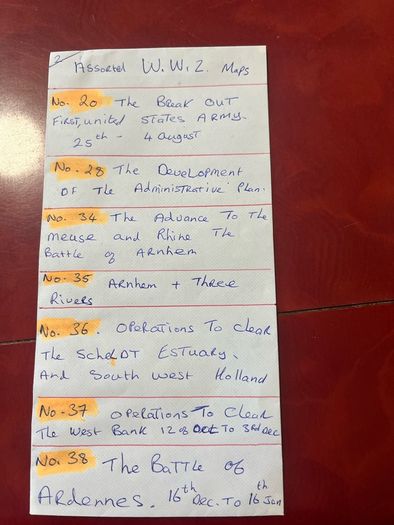 2/ Assorted W.W.2. Maps
No. 20 The Break OUT
First, united States ARMY.
25th - 4 august
No. 28 The Development
OF The Administrative Plan.
No. 34 The Advance To The
meuse and Rhine The
Battle of Arnhem
No. 35 Arnhem + Three
Rivers
No. 36. OPerations To Clear
The ScheLDT Estuary,
And South West Holland
No. 37 operations To Clear
The West Bank 12 Oct To 3rd Dec
No. 38 The Battle of
Ardennes. 16th Dec. To 16th Jan